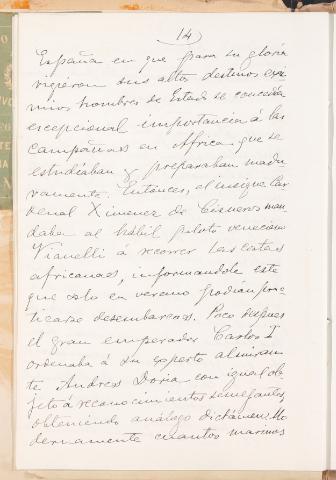 14)
España en que para su gloria
rigieron sus altos destinos exi-
mios hombres de Estado se concedía
excepcional importancia á las
campañas en Africa que se
estudiaban y preparaban madu
ramente. Entónces, el insigne Car
denal Ximenez de Cisneros man
daba al hábil piloto veneciano
Vianelli á recorrer las costas
africanas, informandole este
que solo en verano podian prac
ticarse desembarcos. Poco despues
el gran emperador Carlos I
ordenaba á su experto almiran
te Andrea Doria con igual ob
jeto á reconocimientos semejantes,
obteniendo análogo dictámen. Mo
dernamente cuantos marinos